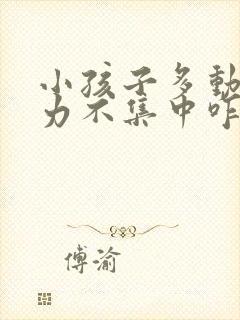 小孩子多動
力不集中咋
傅渝